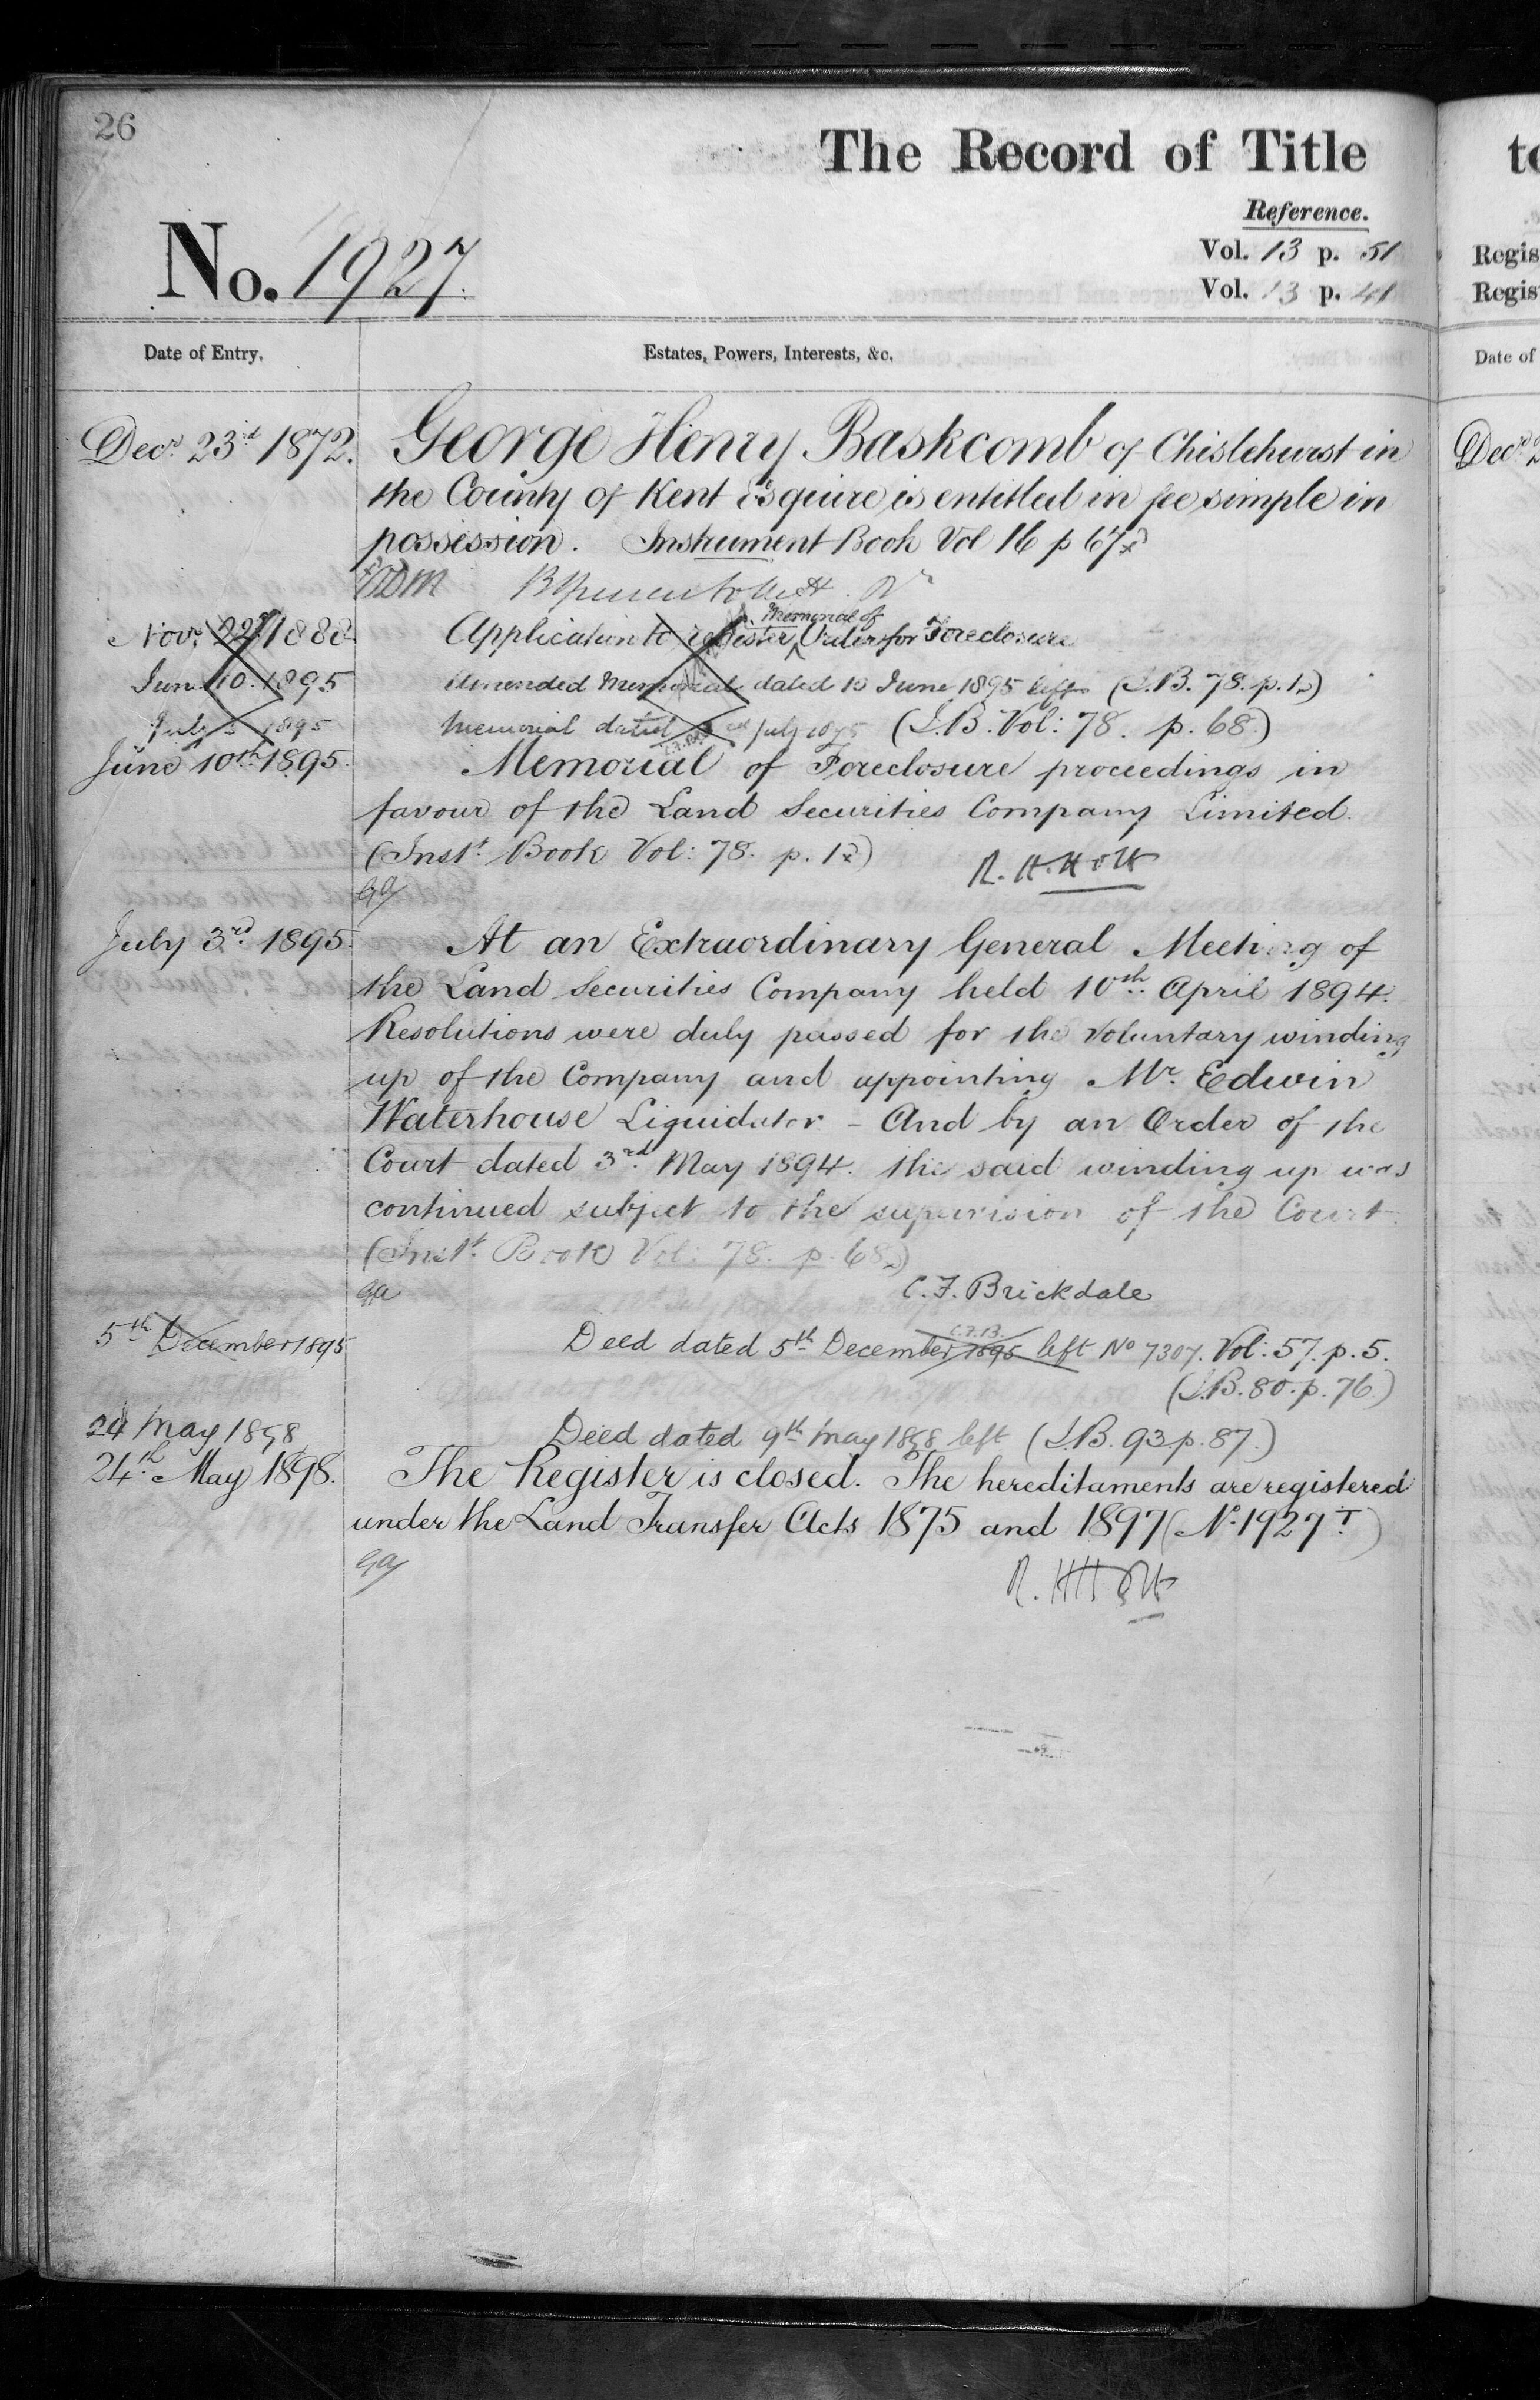 26
The Record of Title
Reference.
No. 1927.
Vol. 13 p. 51
Vol. 13 p. 41
Date of Entry.
Estates, Powers, Interests, &c.
Decr. 23d 1872. George Henry Baskcomb of Chislehurst in
the County of Kent Esquire is entitled in fee simple in
possession. Instrument Book Vol 16 p 67
Novr 22d 1888 Application to register Memorial of Order for Foreclosure
June 10. 1895 Amended Memorial dated 10 June 1895 left (I.B. 78. p. 1.)
July 3 1895 Memorial dated 3rd July 1895 (I.B. Vol: 78. p. 68.)
June 10th 1895. Memorial of Foreclosure proceedings in
favour of the Land Securities Company Limited.
(Inst. Book Vol: 78. p. 1)
R. H. Holt
July 3rd 1895. At an Extraordinary General Meeting of
the Land Securities Company held 10th April 1894.
Resolutions were duly passed for the voluntary winding
up of the Company and appointing Mr. Edwin
Waterhouse Liquidator - And by an Order of the
Court dated 3rd May 1894. the said winding up was
continued subject to the supervision of the Court.
(Inst. Book Vol: 78. p. 68)
C. F. Brickdale
C.F.B.
5th December 1895 Deed dated 5th December 1895 left No 7307. Vol: 57. p. 5.
(I.B. 80. p. 76.)
24 May 1898 Deed dated 9th May 1898 left (I.B. 93 p. 87.)
24th May 1898. The Register is closed. The hereditaments are registered
under the Land Transfer Acts 1875 and 1897 (No. 1927 T)
R. H. Holt
to
Regis
Regis
Date of
Decr 2